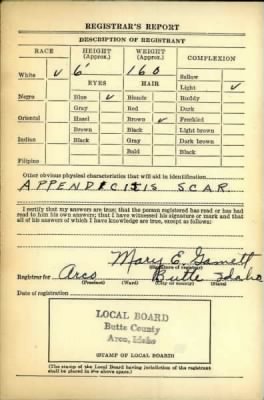 REGISTRAR'S REPORT
DESCRIPTION OF REGISTRANT
RACE HEIGHT (Approx.) WEIGHT (Approx.) COMPLEXION
White ✓ 6' 160 Sallow
EYES HAIR Light ✓
Negro Blue ✓ Blonde Ruddy
Gray Red Dark
Oriental Hazel Brown ✓ Freckled
Brown Black Light brown
Indian Black Gray Dark brown
Bald Black
Filipino
Other obvious physical characteristics that will aid in identification
APPENDICITIS SCAR
I certify that my answers are true; that the person registered has read or has had
read to him his own answers; that I have witnessed his signature or mark and that
all of his answers of which I have knowledge are true, except as follows:
Mary E.
(Signature of registrar)
Registrar for Arco Butte Idaho
(Precinct) (Ward) (City or county) (State)
Date of registration
LOCAL BOARD
Butte County
Arco, Idaho
(STAMP OF LOCAL BOARD)
(The stamp of the Local Board having jurisdiction of the registrant
shall be placed in the above space.)